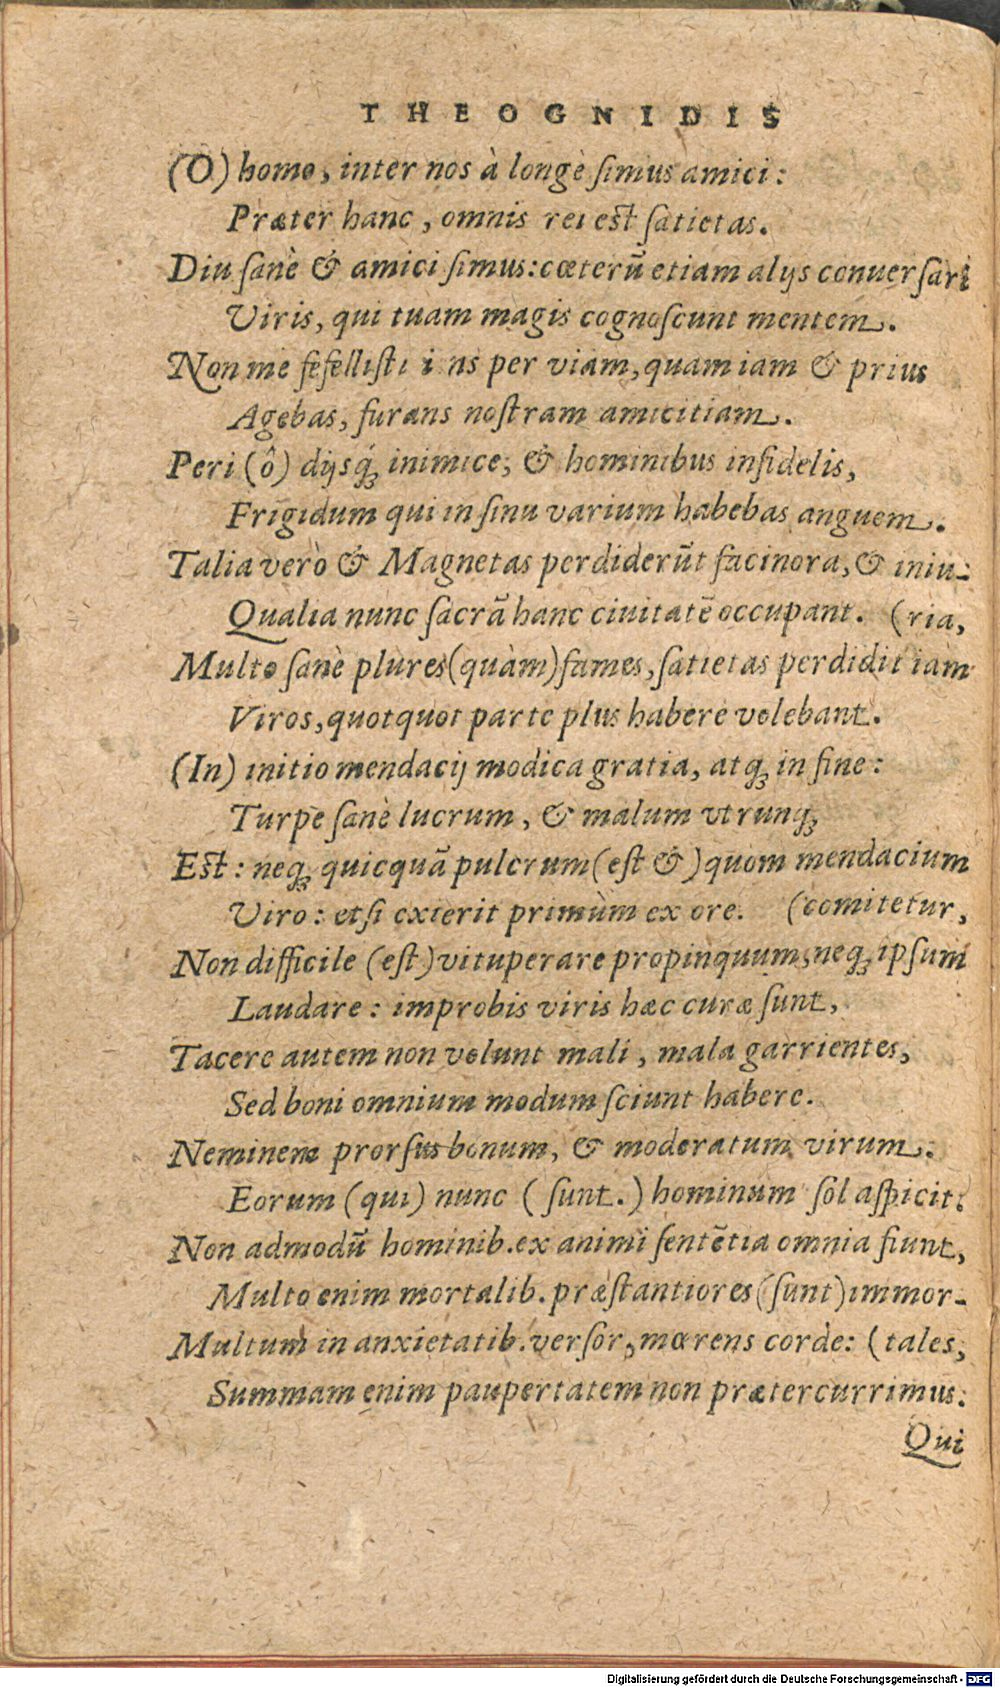 THEOGNIDIS
(O) homo, inter nos à longè ſimus amici:
Præter hanc, omnis rei eſt ſatietas.
Diu ſanè & amici ſimus: cæterũ etiam alijs conuerſari
Viris, qui tuam magis cognoſcunt mentem.
Non me fefelliſti i ns per viam, quam iam & prius
Agebas, furans noſtram amicitiam.
Peri (ô) dijsq́; inimice, & hominibus infidelis,
Frigidum qui in ſinu varium habebas anguem.
Talia verò & Magnetas perdiderũt facinora, & iniu-
Qualia nunc ſacrã hanc ciuitatẽ occupant. (ria,
Multo ſanè plures (quàm) fames, ſatietas perdidit iam
Viros, quotquot parte plus habere volebant.
(In) initio mendacij modica gratia, atq; in fine:
Turpe ſanè lucrum, & malum vtrunq;
Eſt: neq; quicquã pulcrum (eſt &) quom mendacium
Viro: etſi exierit primùm ex ore. (comitetur,
Non difficile (eſt) vituperare propinquum, neq; ipſum
Laudare: improbis viris hæc curæ ſunt,
Tacere autem non volunt mali, mala garrientes,
Sed boni omnium modum ſciunt habere.
Neminem prorſus bonum, & moderatum virum.
Eorum (qui) nunc (ſunt.) hominum ſol aſpicit:
Non admodũ hominib. ex animi ſentẽtia omnia fiunt,
Multo enim mortalib. præſtantiores (ſunt) immor-
Multum in anxietatib. verſor, mœrens corde: (tales,
Summam enim paupertatem non prætercurrimus:
Qui
Digitalisierung gefördert durch die Deutsche Forschungsgemeinschaft - DFG